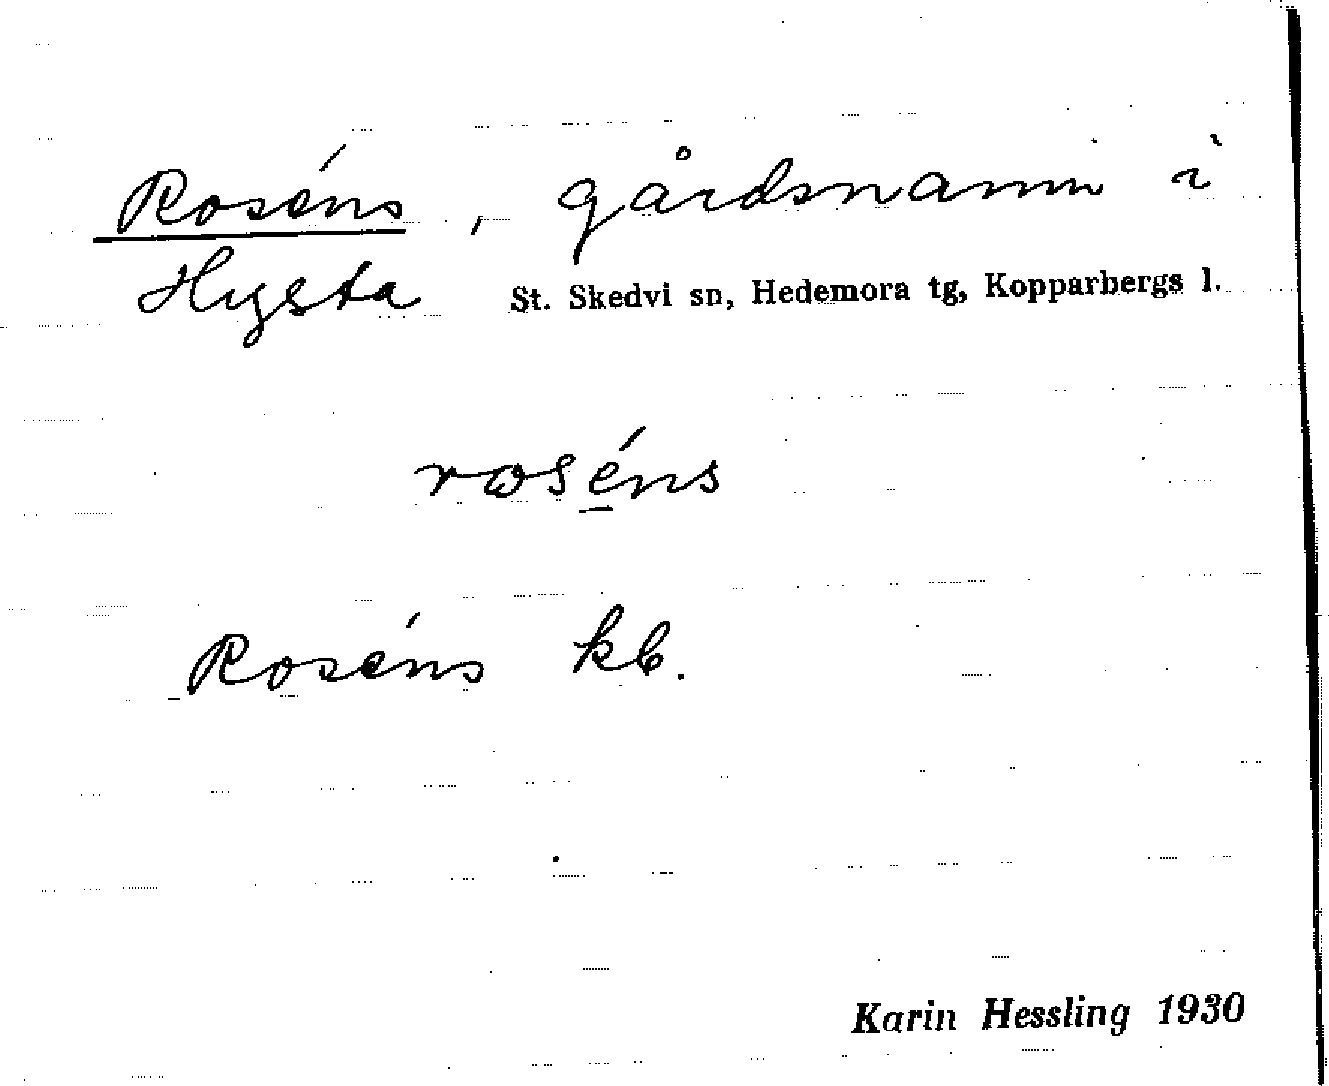 Roséns, gårdsnamn i
Hysta St. Skedvi sn, Hedemora tg, Kopparbergs l.
roséns
Roséns kb.
Karin Hessling 1930